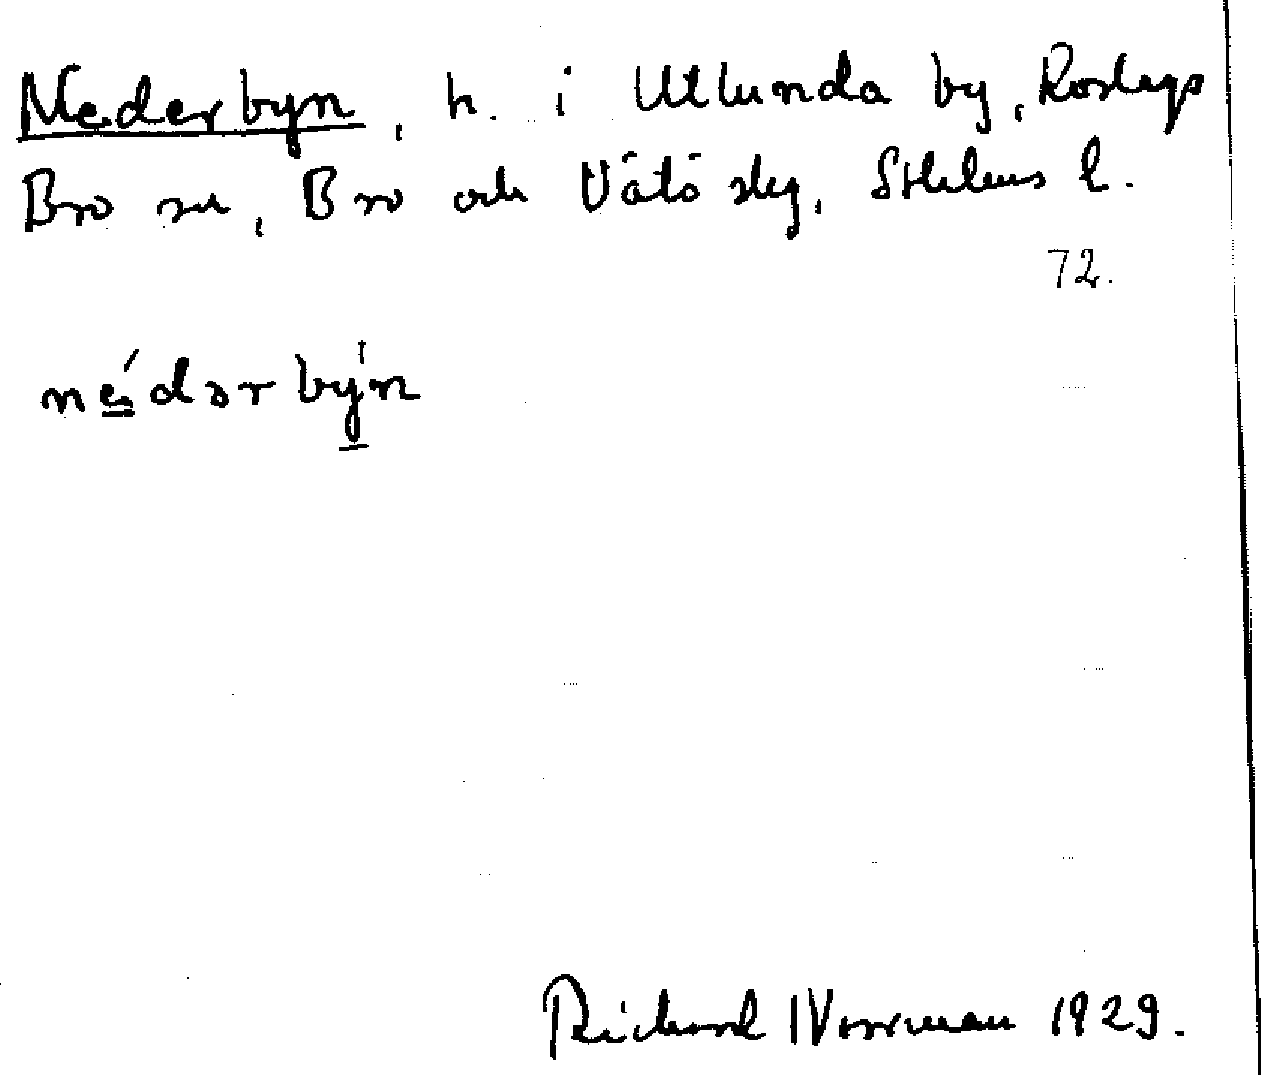 Nederbyn, h. i Utlunda by, Roslags
Bro sn, Bro och Vätö skg, Sthlms l.
72.
né̱dərbý̱n
Richard Norrman 1929.